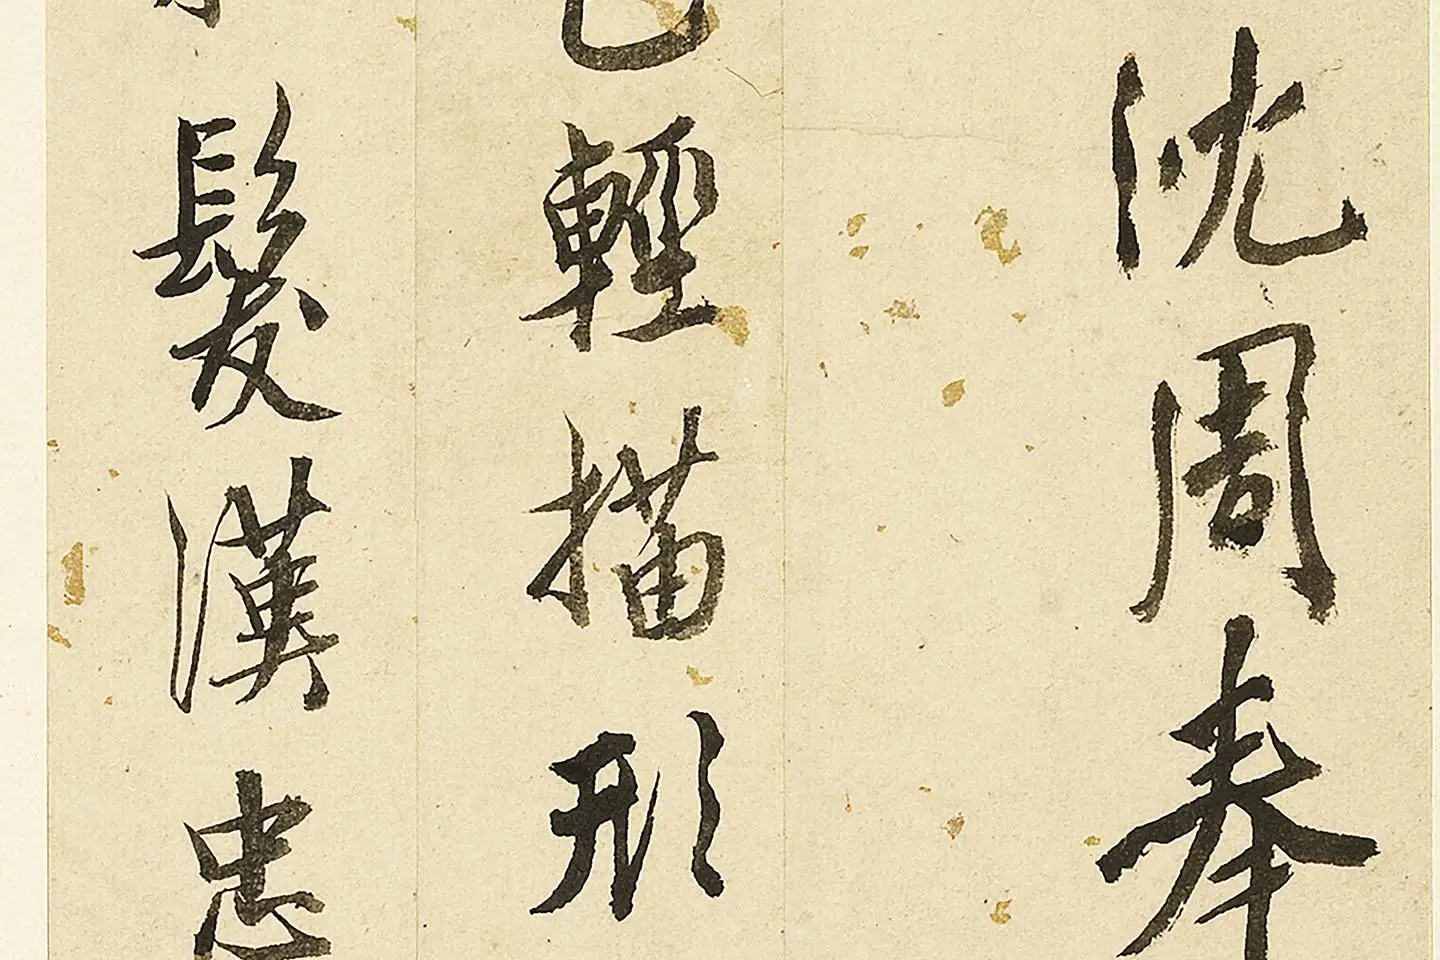 沈周奉
輕描形
髮漢忠